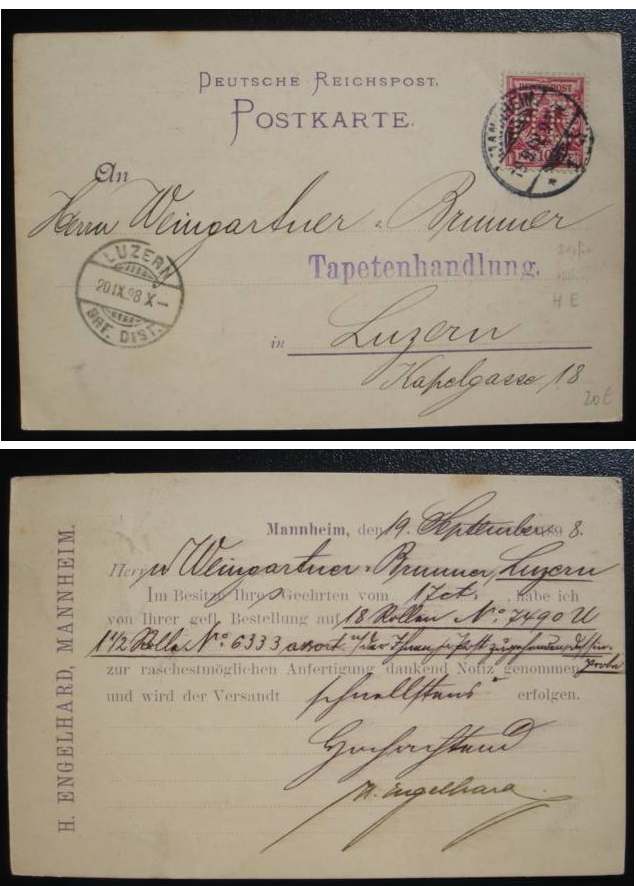 DEUTSCHE REICHSPOST.
POSTKARTE.
MANNHEIM
An
Herrn Weingartner-Brunner
Tapetenhandlung.
LUZERN
20 IX.98 X-
BRF. DIST.
H E
in Luzern
Kapelgasse 18
20 €
H. ENGELHARD, MANNHEIM.
Mannheim, den 19. September 1898.
Herrn Weingartner-Brunner, Luzern
Im Besitze Ihres Geehrten vom 17 ct., habe ich
von Ihrer gefl. Bestellung auf 18 Rollen No. 7490 U
1 1/2 Rolle No. 6333 assort.
zur raschestmöglichen Anfertigung dankend Notiz genommen
und wird der Versandt schnellstens erfolgen.
Hochachtend
H. Engelhard